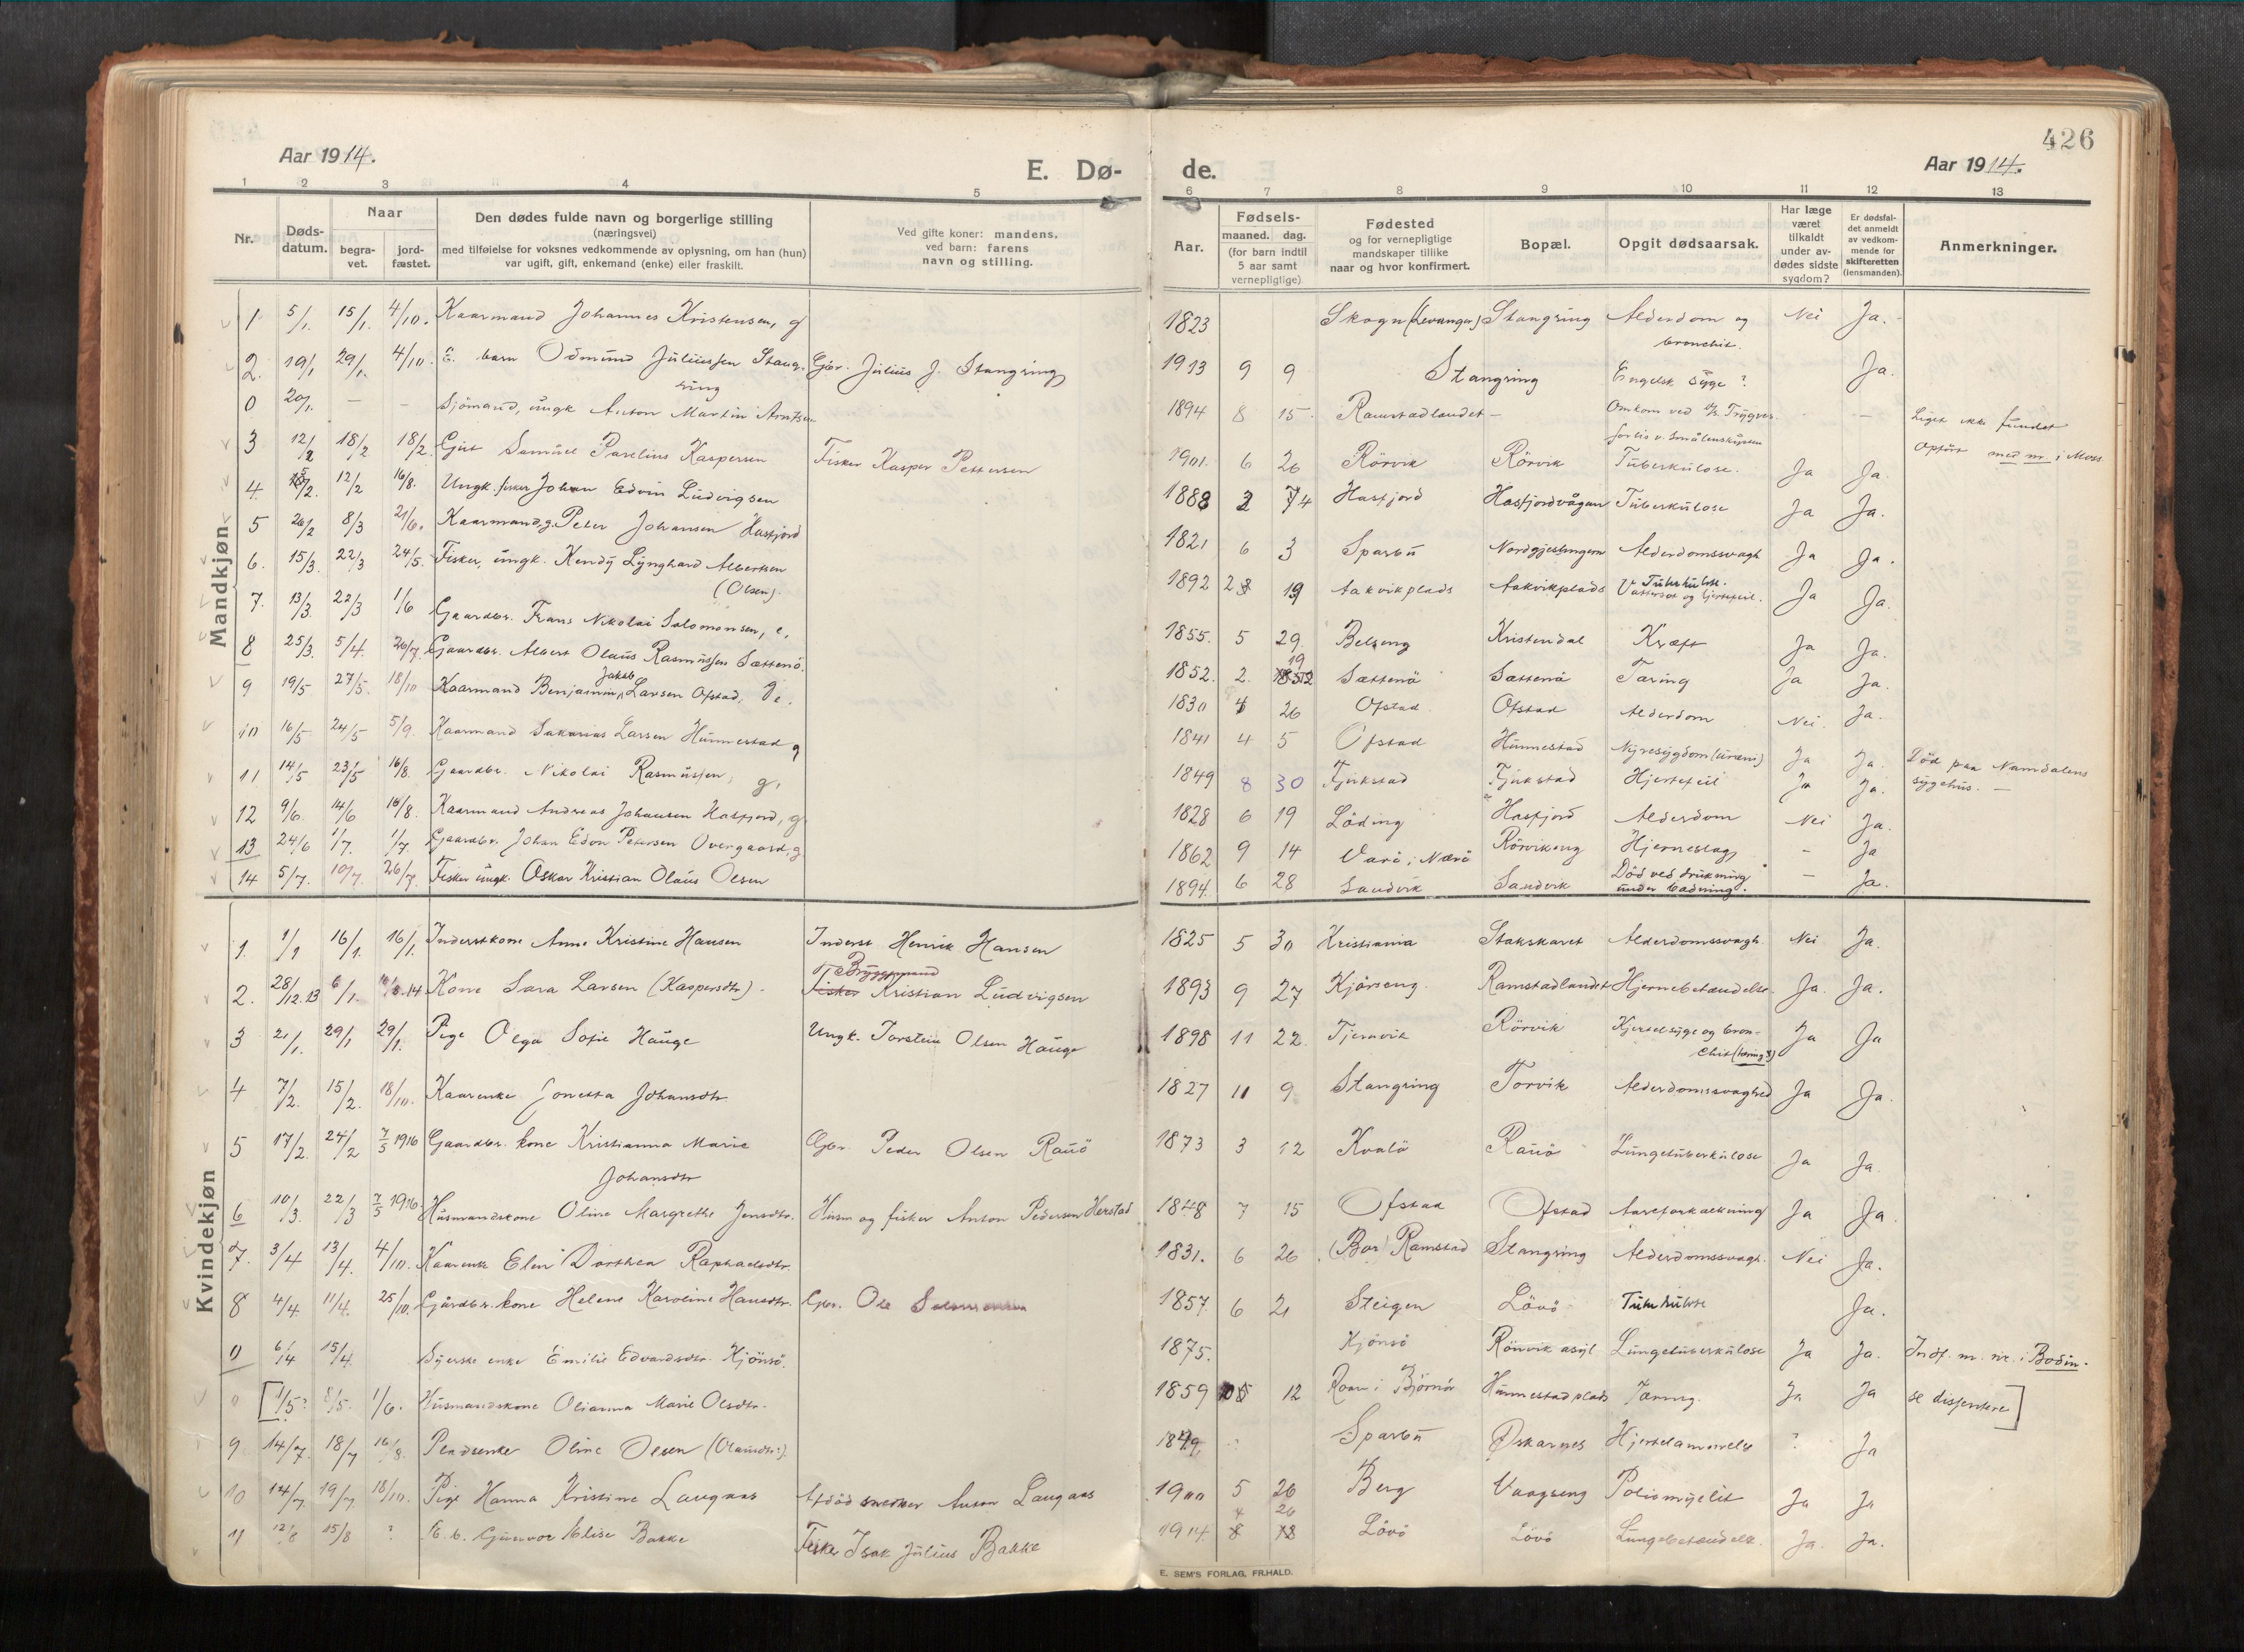 426
Aar 1914.
E. Dø-
de.
Aar 1914.
1 2 3 4 5 6 7 8 9 10 11 12 13
Nr.
Døds-
datum.
Naar
begra-
vet.
jord-
fæstet.
Den dødes fulde navn og borgerlige stilling
(næringsvei)
med tilføielse for voksnes vedkommende av oplysning, om han (hun)
var ugift, gift, enkemand (enke) eller fraskilt.
Ved gifte koner: mandens,
ved barn: farens
navn og stilling.
Aar.
Fødsels-
maaned. dag.
(for barn indtil
5 aar samt
vernepligtige)
Fødested
og for vernepligtige
mandskaper tillike
naar og hvor konfirmert.
Bopæl.
Opgit dødsaarsak.
Har læge
været
tilkaldt
under av-
dødes sidste
sygdom?
Er dødsfal-
det anmeldt
av vedkom-
mende for
skifteretten
(lensmanden).
Anmerkninger.
Mandkjøn
1. 5/1. 15/1. 4/10. Kaarmand Johannes Kristensen, g 1823 Skogn (Levanger) Stangring Alderdom og Nei Ja.
bronchit.
2. 19/1 29/1. 4/10. E. barn Odmund Juliussen Stang- Gbr. Julius J. Stangring 1913 9 9 Stangring Engelsk syge? Ja.
ring
0 20/1. — — Sjömand, ungk Anton Martin Arntsen 1894 8 15 Ramstadlandet — Omkom ved Trygves — — Liget ikke fundet
forlis v. Smålenskysten Opfört med nr. i Moss
3 12/2 18/2 18/2. Gut Samuel Parelius Kaspersen Fisker Kasper Pettersen 1901. 6 26 Rörvik Rörvik Tuberkulose. Ja Ja.
4. 5/2. 12/2 16/8. Ungk. fisker Johan Edvin Ludvigsen 1888 2 4 Hasfjord Hasfjordvågan Tuberkulose Ja Ja.
5 26/2 8/3 21/6. Kaarmand, g. Peter Johansen Hasfjord 1821 6 3 Sparbu Nordgjeslingern Alderdomssvagh Ja Ja.
6. 15/3. 22/3 24/5. Fisker, ungk. Kendy Lynghard Albertsen 1892 2 19 Aakvikplads Aakvikplads Tuberkulose. Vattersot og hjertefeil. Ja Ja.
(Olsen).
7. 13/3. 22/3 1/6 Gaardbr. Frans Nikolai Salomonsen, e. 1855. 5 29. Belseng Kristendal Kræft Ja Ja.
8 25/3. 5/4. 26/7. Gaardbr. Albert Olaus Rasmussen Sættenö. 1852. 2. 19 Sættenö Sættenö Tæring Ja Ja.
9 19/5 27/5. 18/10 Kaarmand Benjamin Jakob Larsen Ofstad, e. 1830 4 26 Ofstad. Ofstad Alderdom Nei. Ja.
10 16/5 24/5 5/9. Kaarmand Sakarias Larsen Hunnestad g 1841 4 5 Ofstad Hunnestad Nyresygdom (uræmi) Ja Ja. Död paa Namdalens
11 14/5 23/5 16/8. Gaardbr. Nikolai Rasmussen, g. 1849 8 30 Tjukstad Tjukstad Hjertefeil Ja Ja. sygehus. —
12 9/6. 14/6 16/8. Kaarmand Andreas Johansen Hasfjord, g 1828 6 19 Löding Hasfjord Alderdom Nei Ja.
13 24/6 1/7. 1/7. Gaardbr. Johan Edvn Petersen Overgaard, g 1862 9 14 Varö i Nærö Rörvikeng Hjerneslag — Ja
14 5/7. 10/7. 26/7. Fisker ungk. Oskar Kristian Olaus Olsen 1894. 6 28 Sandvik Sandvik Död ved drukning — Ja.
under badning.
Kvindekjøn
1. 1/1 16/1. 16/1. Inderstkone Anne Kristine Hansen Inderst Henrik Hansen 1825 5 30 Kristiania Stakskaret Alderdomssvagh. Nei Ja.
2. 28/12.13 6/1. 14 Kone Sara Larsen (Kaspersdtr). Bryggemand Fisker Kristian Ludvigsen 1893 9 27 Kjörseng. Ramstadlandet Hjernebetændelse. Ja. Ja.
3 21/1. 29/1 29/1. Pige Olga Sofie Hauge Ungk. Torstein Olsen Hauge 1898 11 22. Tjernvik Rörvik Kjertelsyge og bron- Ja Ja
chit (tæring?)
4 7/2. 15/2. 18/10. Kaarenke Jonetta Johansdtr 1827 11 9 Stangring Torvik Alderdomssvaghed Ja Ja.
5 17/2. 24/2 7/5 1916 Gaardbr. kone Kristianna Marie Gbr. Peder Olsen Rauö 1873 3 12 Kvalö Rauö Lungetuberkulose Ja Ja.
Johansdtr
6 10/3. 22/3 7/5 1916. Husmandskone Oline Margrethe Jensdtr. Husm og fisker Anton Pedersen Herstad 1848 7 15 Ofstad Ofstad Aareforkalkning Ja Ja.
7. 3/4 13/4. 4/10. Kaarenke Elen Dorthea Raphaelsdtr. 1831. 6 26 (Bor) Ramstad Stangring Alderdomssvagh. Nei Ja.
8 4/4. 11/4. 25/10. Gårdbr. kone Helene Karoline Hansdtr. Gbr. Ole 1857. 6 21 Steigen Lövö Tuberkulose Ja.
0 6/4 15/4. Syerske enke Emilie Edvardsdtr. Kjönsö. 1875. Kjönsö Rönvik asyl Lungetuberkulose Ja Ja. Indf. m. nr. i Bodin.
0 [1/5? 8/5. 1/6. Husmandskone Olianna Marie Olsdtr. 1859 12 Roan i Björnör Hunnestadplads Tæring. Ja Ja se dissentere]
9 14/7. 18/7 16/8. Pladsenke Oline Olsen (Olausdtr?). 1849 Sparbu Oskarnes Hjertelammelse ? Ja
10 14/7. 19/7 18/10. Pige Hanna Kristine Langaas Afdöd snekker Anton Langaas 1900 5 26 Berg Vaagseng Poliomyelit Ja Ja
11 12/8 15/8 ? E. b. Gunvor Elise Bakke Fisker Isak Julius Bakke 1914. 4 26 Lövö Lövö Lungebetændelse. Ja. Ja.
E. SEM'S FORLAG, FR.HALD.